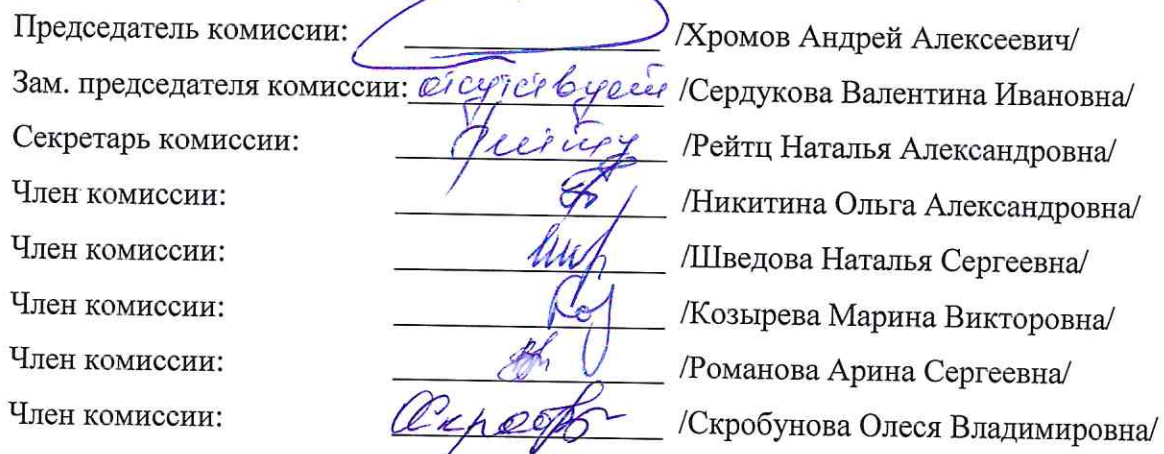 Председатель комиссии: /Хромов Андрей Алексеевич/
Зам. председателя комиссии: отсутствует /Сердукова Валентина Ивановна/
Секретарь комиссии: /Рейтц Наталья Александровна/
Член комиссии: /Никитина Ольга Александровна/
Член комиссии: /Шведова Наталья Сергеевна/
Член комиссии: /Козырева Марина Викторовна/
Член комиссии: /Романова Арина Сергеевна/
Член комиссии: /Скробунова Олеся Владимировна/